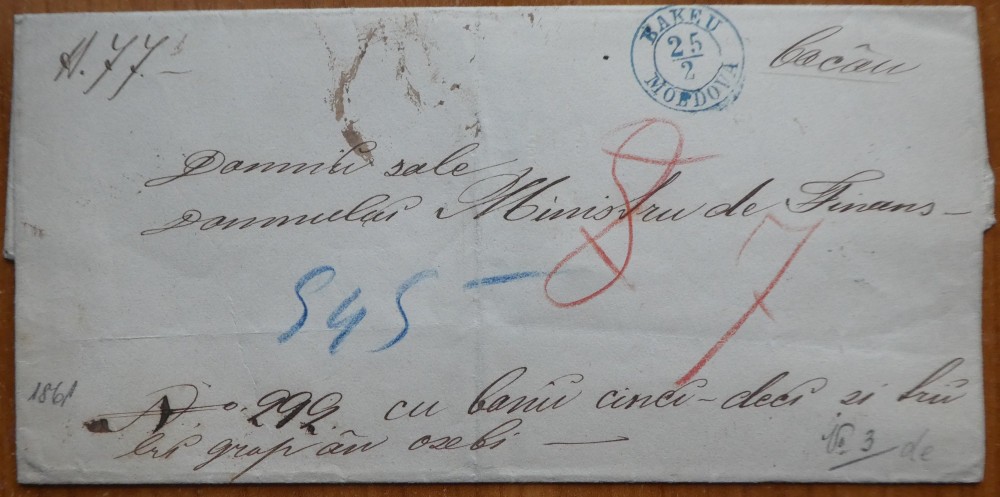 N. 77.
BAKEU
25
2
MOLDOVA
Bacău
Domniei sale
Domnului Ministru de Finans-
8
7
545 -
1861
No. 299. cu banii cinci-deci si
lei grop ân osebi -
3 de